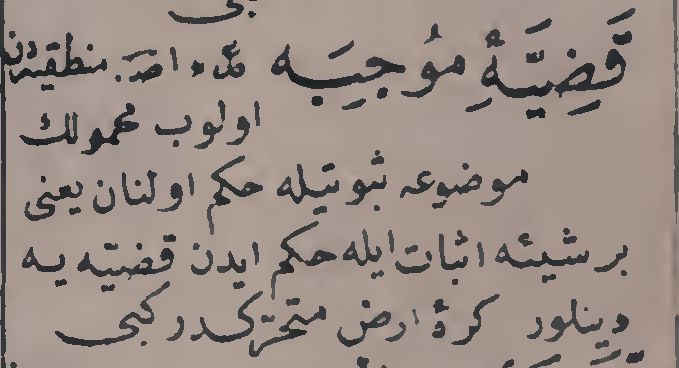 قَضِيَّهٔ مُوجِبَه مد. اصـ. منطقيه‌دن
اولوب محمولك
موضوعه ثبوتيله حكم اولنان يعنى
بر شيئه اثبات ايله حكم ايدن قضيّه يه
دينلور كرهٔ ارض متحرّكدر كبى